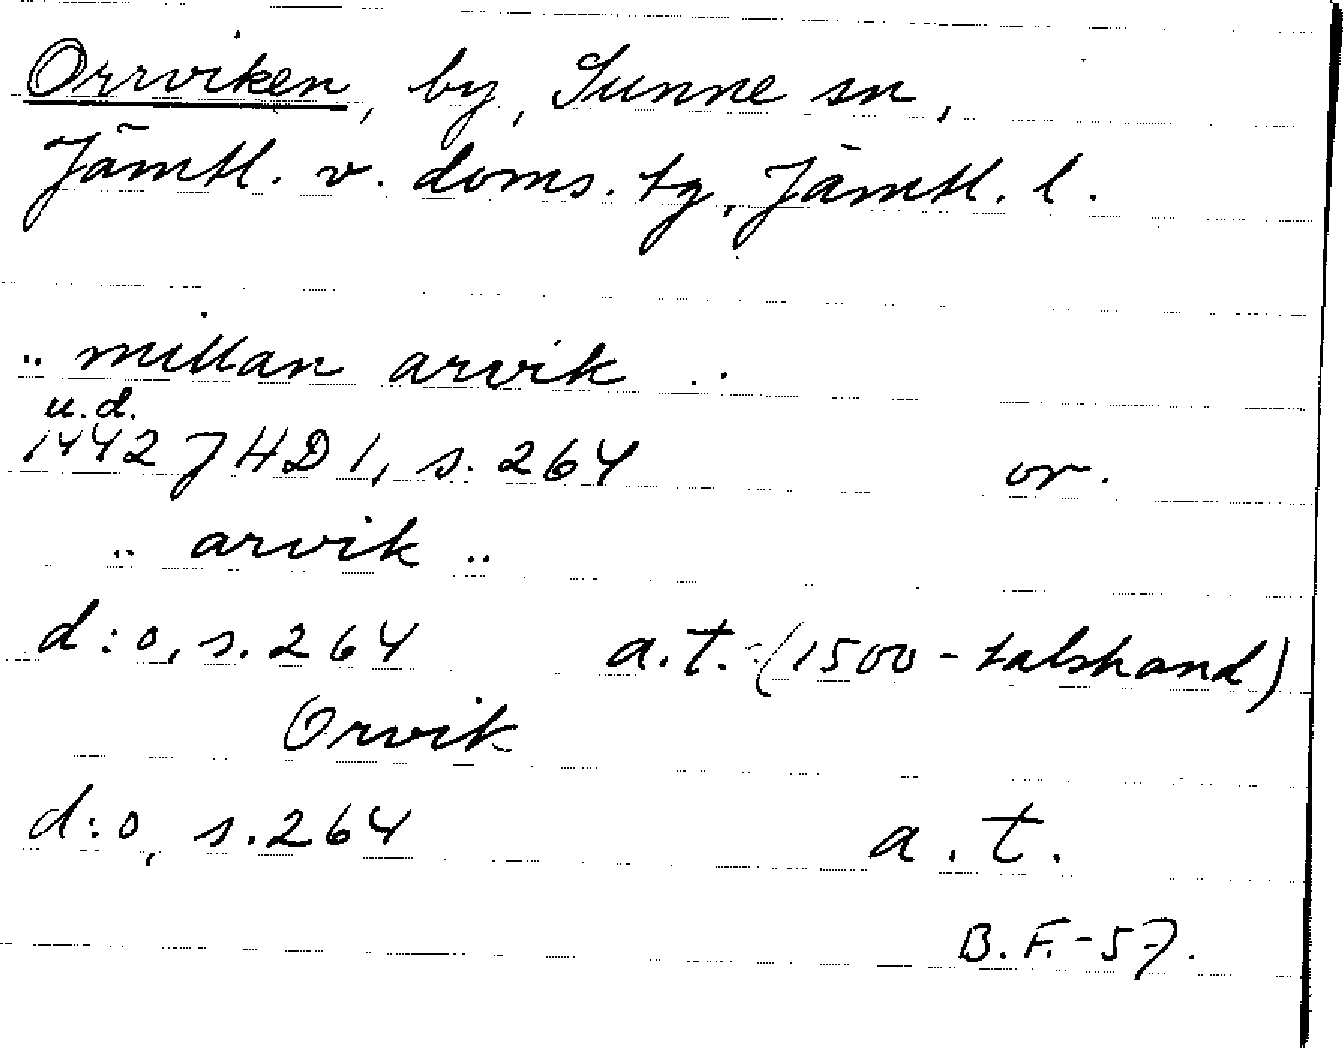 Orrviken, by, Sunne sn,
Jämtl. v. doms. tg, Jämtl. l.
.. millan arvik ..
u.d.
1442 JHD 1, s. 264 or.
.. arvik ..
d:o, s. 264 a.t. (1500-talshand)
Orvik
d:o, s. 264 a.t.
B.F.-57.